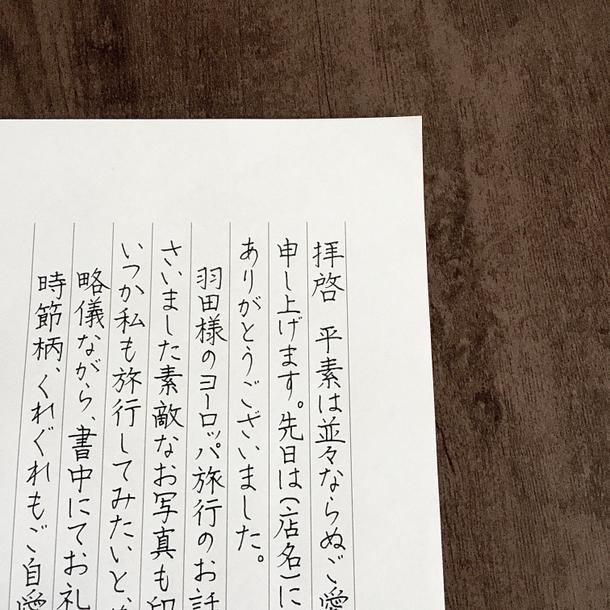 拝啓　平素は並々ならぬご愛
申し上げます。先日は(店名)に
ありがとうございました。
羽田様のヨーロッパ旅行のお話
さいました素敵なお写真も印
いつか私も旅行してみたいと、
略儀ながら、書中にてお礼
時節柄、くれぐれもご自愛